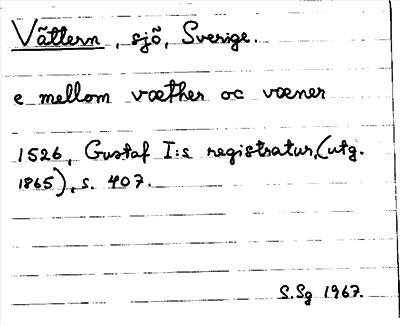 Vättern, sjö, Sverige.
e mellom væther oc væner
1526, Gustaf I:s registratur, (utg.
1865), s. 407.
S.Sg 1967.